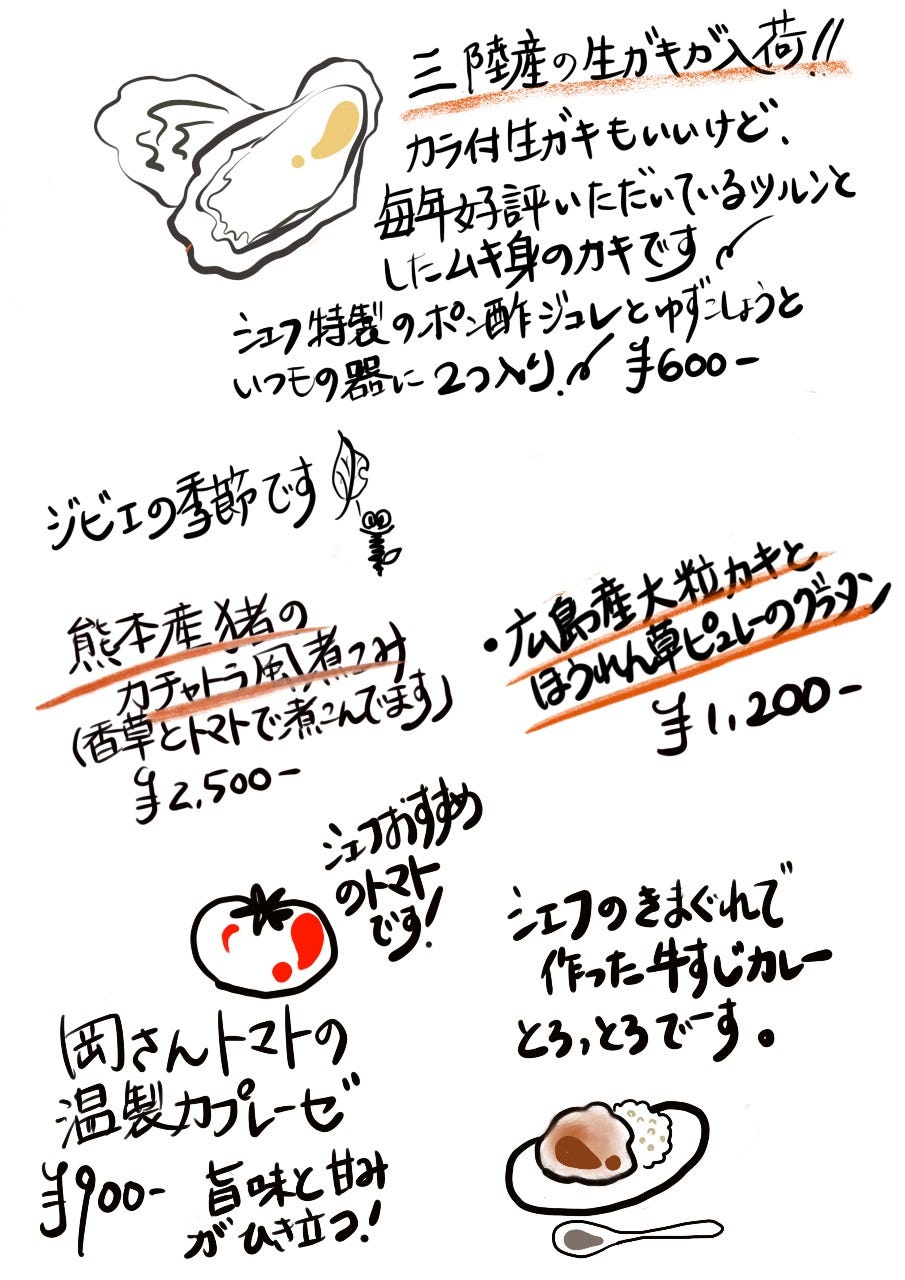 三陸産の生ガキが入荷!!
カラ付生ガキもいいけど、
毎年好評いただいているツルンと
したムキ身のカキです
シェフ特製のポン酢ジュレとゆずこしょうと
いつもの器に2つ入り。 ¥600-
ジビエの季節です
熊本産猪の
カチャトラ風煮こみ
(香草とトマトで煮こんでます)
¥2,500-
・広島産大粒カキと
ほうれん草ピュレーのグラタン
¥1,200-
シェフおすすめ
のトマト
です!
岡さんトマトの
温製カプレーゼ
¥900- 旨味と甘み
がひき立つ!
シェフのきまぐれで
作った牛すじカレー
とろっとろでーす。